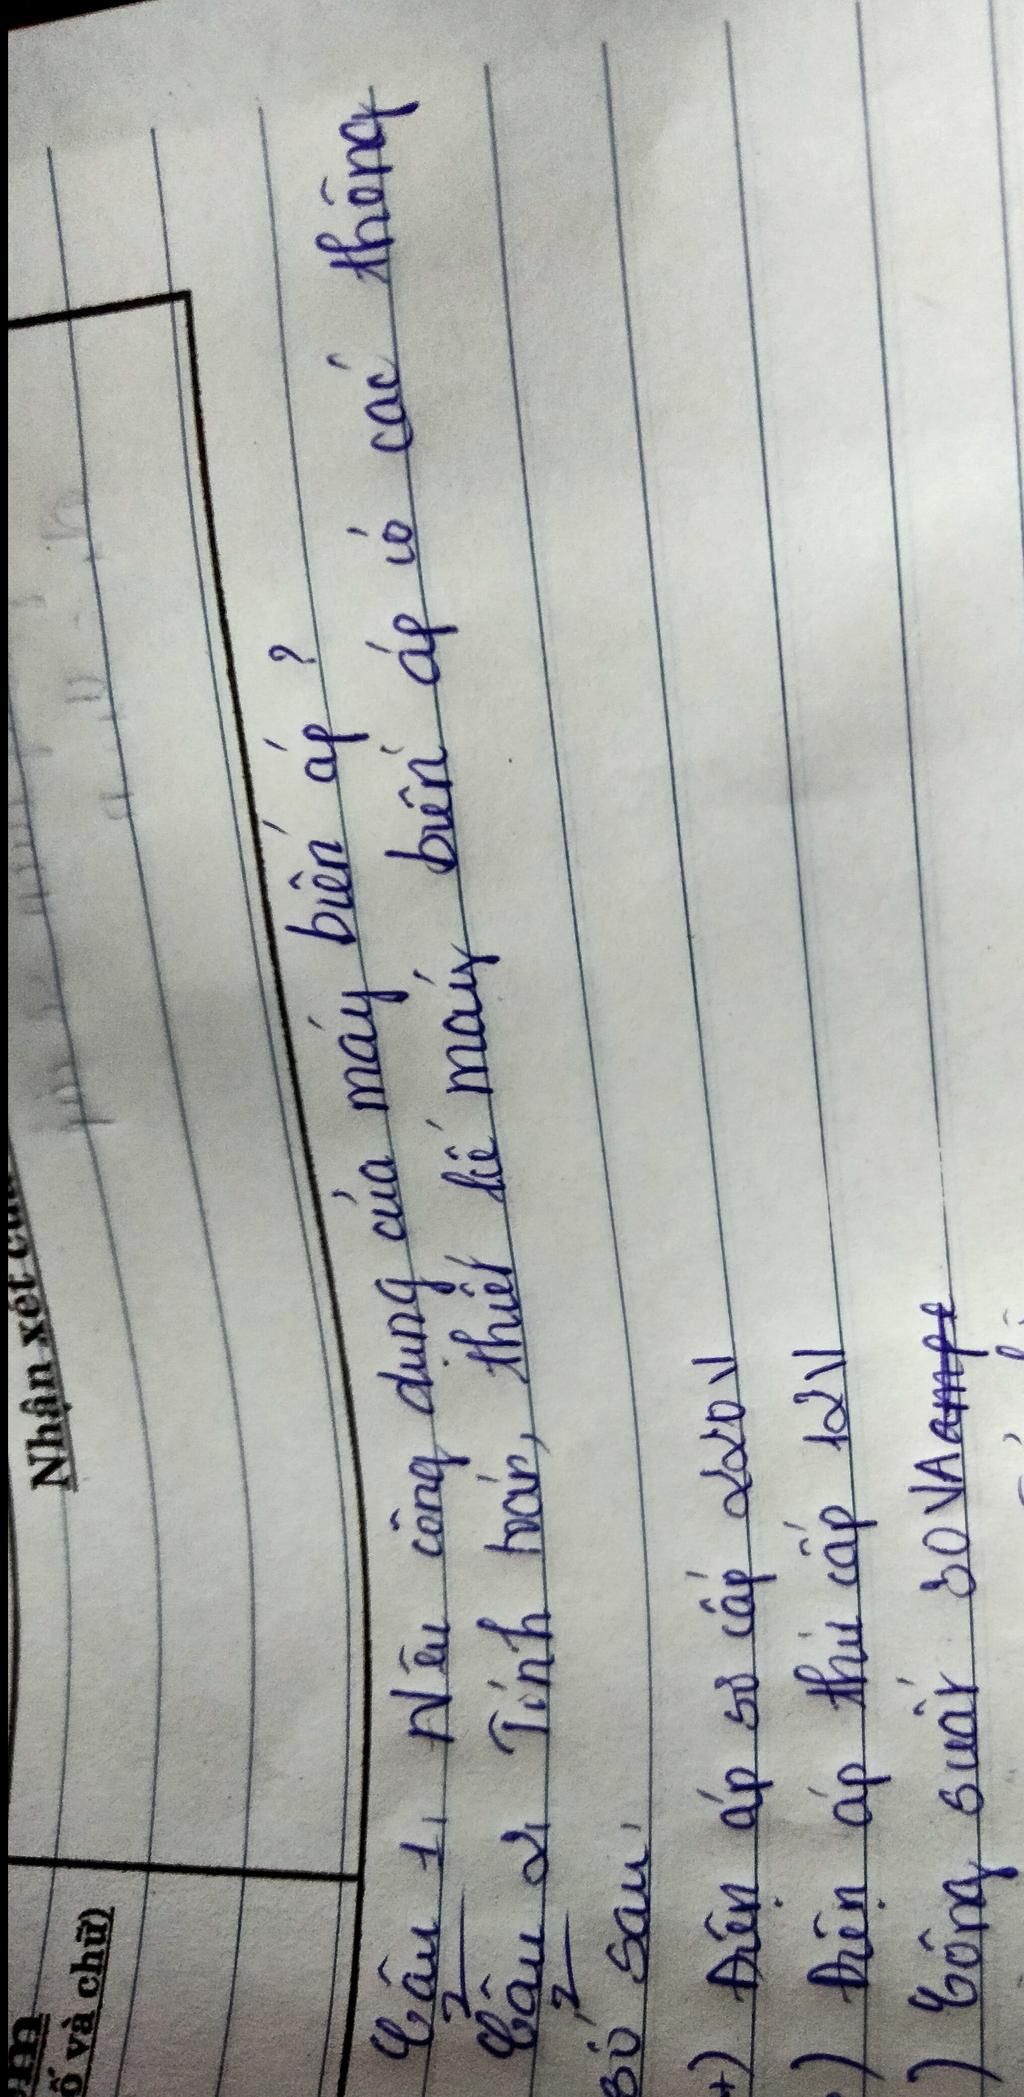 Nhận xét của
ố và chữ)
Câu 1, Nêu công dụng của máy biến áp ?
Câu 2, Tính toán, thiết kế máy biến áp có các thông
số sau:
+) Điện áp sơ cấp 220V
) Điện áp thứ cấp 12V
) Công suất 30VA